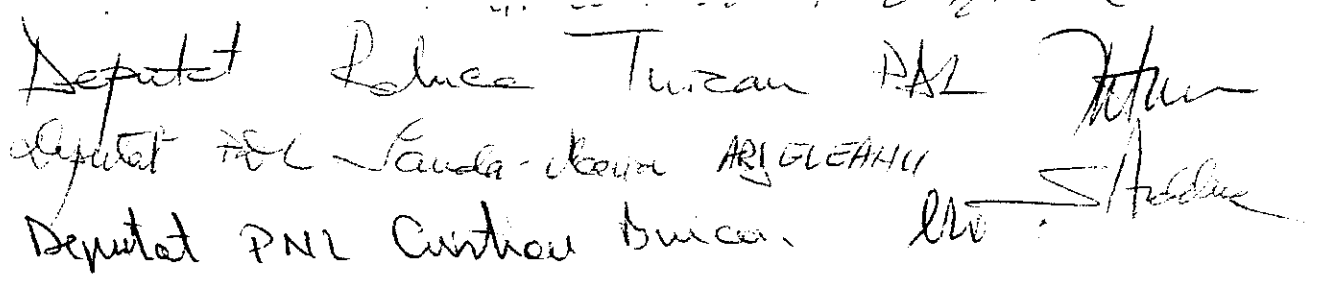 Deputat Raluca Turcan PNL
Deputat PNL Sanda-Maria ARDELEANU
Deputat PNL Cristian Buican